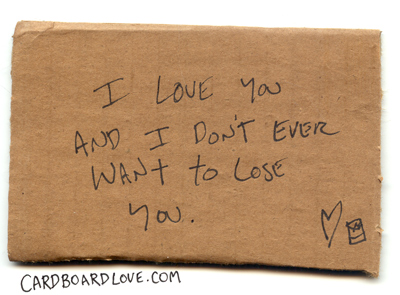 I LOVE YOU
AND I DON'T EVER
WANT to LOSE
YOU.
CARDBOARDLOVE.COM